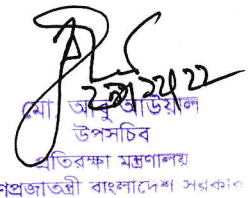 মো আবু আউয়াল
উপসচিব
প্রতিরক্ষা মন্ত্রণালয়
গণপ্রজাতন্ত্রী বাংলাদেশ সরকার